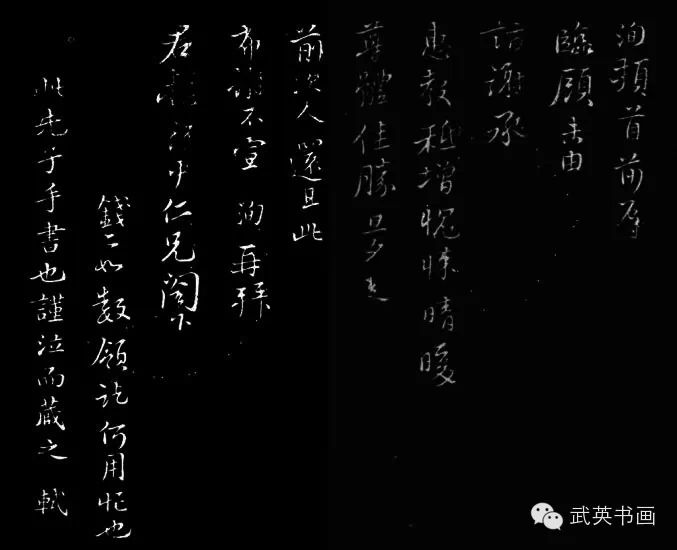 洵頓首前辱
臨顧未由
詣謝承
惠教秪增愧悚晴暖
尊體佳勝旦夕走
前次人還且此
布謝不宣 洵再拜
君 中仁兄閤下
錢二如數領訖何用忙也
此先子手書也謹泣而藏之 軾
武英书画